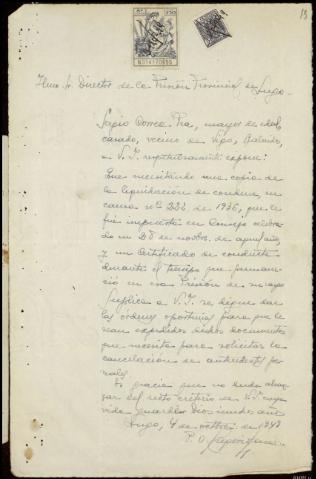 13
N014170655
Ilmo. Sr. Director de la Prisión Provincial de Lugo.
Correa Pra, mayor de edad,
casado, vecino de Vigo,
a V.I. respetuosamente expone:
Que necesitando una copia de
la liquidación de condena, en
causa nº 222 de 1936, que le
fué impuesta en Consejo celebrado
en 28 de de aquel año,
y un certificado de conducta
durante el tiempo que permaneció
en esa Prisión
Suplica a V.I. se digne dar
las órdenes oportunas para que le
sean expedidos dichos documentos
que necesita para solicitar la
cancelación de antecedentes penales.
Es gracia que no duda alcanzar
del recto criterio de V.I. cuya
vida guarde Dios muchos años.
Lugo, 4 de octubre de 1943
P.O.